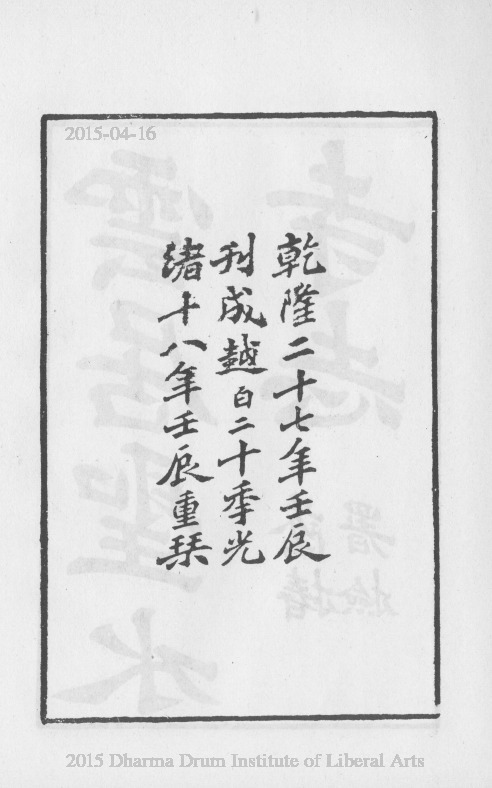 2015-04-16
乾隆二十七年壬辰
刊成越百二十季光
緒十八年壬辰重栞
2015 Dharma Drum Institute of Liberal Arts